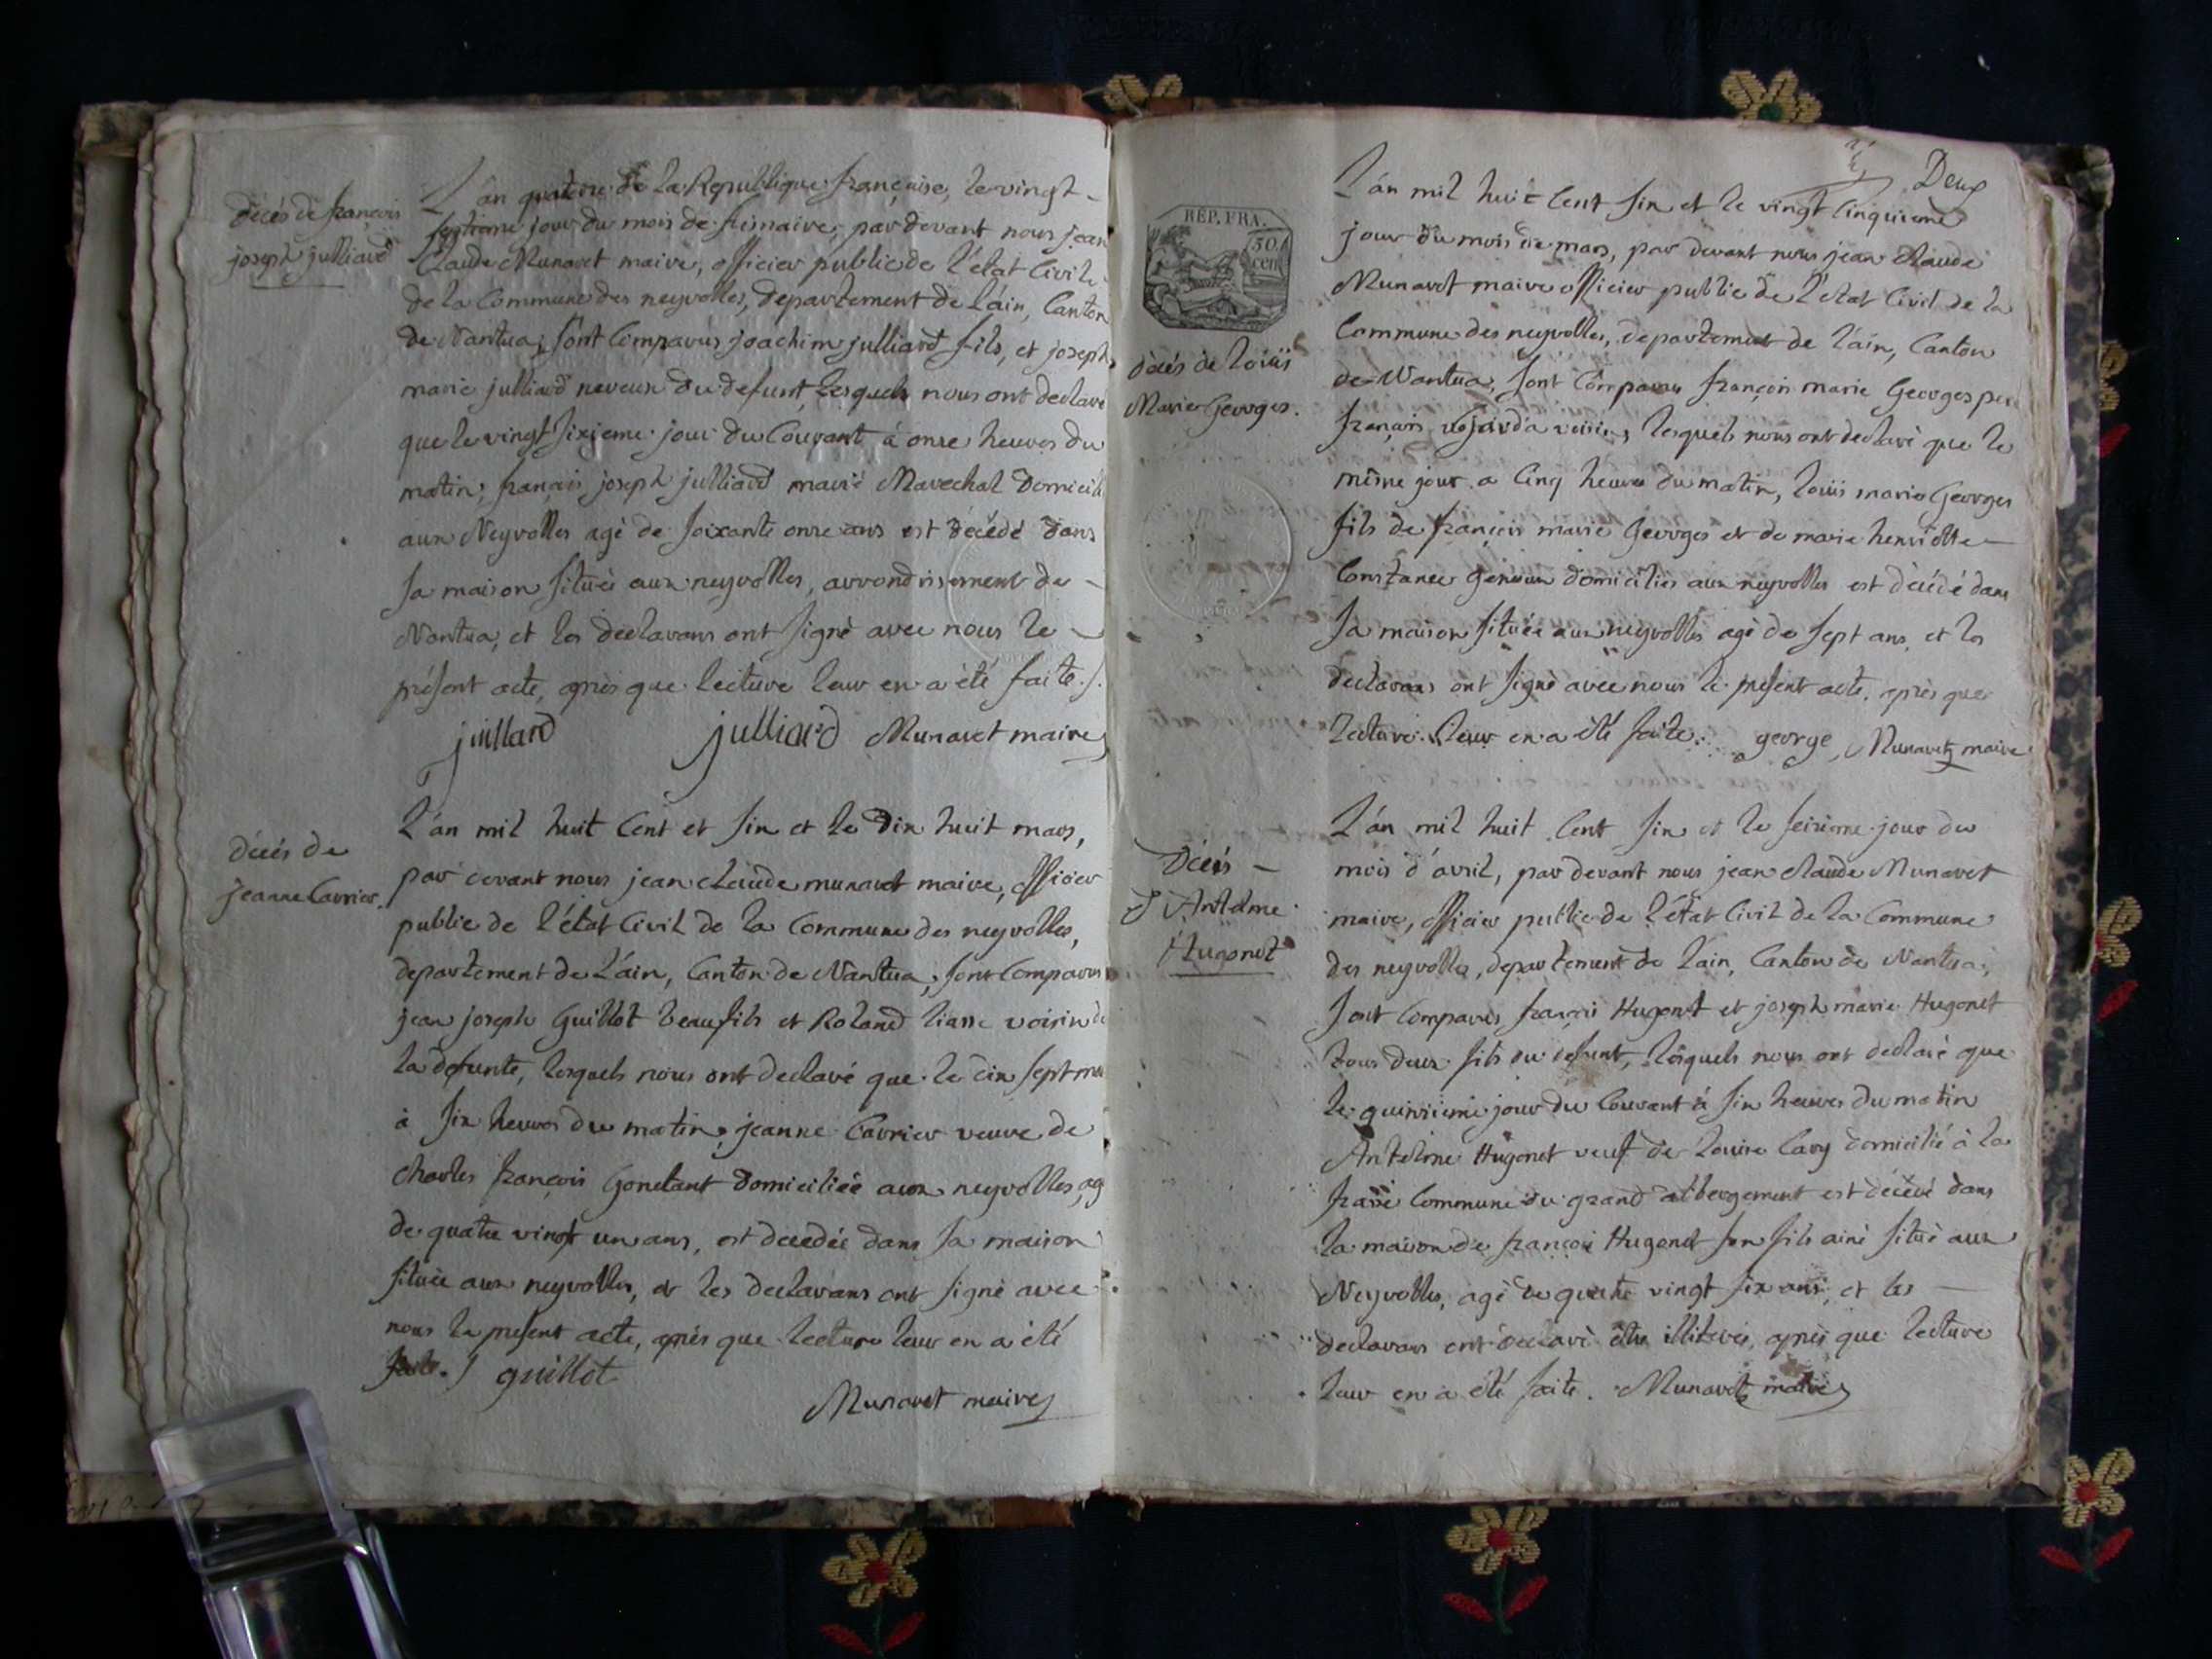 décés de françois
joseph julliard
L'an quatorze de la Republique française, le vingt
septieme jour du mois de frimaire, par devant nous jean
Claude Munaret maire, officier public de l'état Civile
de la Commune des neyrolles, departement de l'ain, Canton
de Nantua, sont Comparus joachim julliard fils, et joseph
marie julliard neveux du defunt, lesquels nous ont declaré
que le vingt sixieme jour du Courant à onze heures du
matin, françois joseph julliard marié Marechal domicilié
aux Neyrolles agé de soixante onze ans est décédé dans
sa maison située aux neyrolles, arrondissement de
Nantua, et les declarans ont signé avec nous le
présent acte, après que lecture leur en a été faite./.
juillard julliard Munaret maire
décés de
jeanne Carrier.
L'an mil huit Cent et six et le dix huit mars,
par devant nous jean claude munaret maire, officier
public de l'état Civil de la Commune des neyrolles,
departement de l'ain, Canton de Nantua, sont Comparus
jean joseph Guillot beaufils et Roland liasse voisin de
la defunte, lesquels nous ont declaré que le dix sept mars
à six heures du matin, jeanne Carrier veuve de
charles françois Gonetant domiciliée aux neyrolles, ag
de quatre vingt un ans, est decedée dans sa maison
située aux neyrolles, et les declarans ont signé avec
nous le present acte, après que lecture leur en a été
faite./ guillot
Munaret maire
Deux
RÉP. FRA.
50
cen
décés de loüis
Marie Georges.
L'an mil huit Cent six et le vingt Cinquieme
jour du mois de mars, par devant nous jean Claude
Munaret maire officier public de l'état Civil de la
Commune des neyrolles, departement de l'ain, Canton
de Nantua, sont Comparus françois marie Georges pere
françois voisin, lesquels nous ont declaré que le
même jour a Cinq heures du matin, loüis marie Georges
fils de françois marie Georges et de marie henriette
Constance domiciliés aux neyrolles est décédé dans
sa maison située aux neyrolles agé de sept ans, et les
declarans ont signé avec nous le present acte, après que
lecture leur en a été faite. george, Munaret maire
Décés
D'Antelme
Hugonet
L'an mil huit Cent six et le seizieme jour du
mois d'avril, par devant nous jean claude Munaret
maire, officier public de l'état Civil de la Commune
des neyrolles, departement de l'ain, Canton de Nantua,
sont Comparus françois Hugonet et joseph marie Hugonet
tous deux fils du defunt, lesquels nous ont declaré que
le quinzieme jour du Courant à six heures du matin
Antelme Hugonet veuf de Louise Cary domicilié à la
Commune du grand abbergement est décédé dans
la maison de françois Hugonet son fils ainé situé aux
Neyrolles, agé de quatre vingt six ans, et les
declarans ont declaré être illiterés, après que lecture
leur en a été faite. Munaret maire